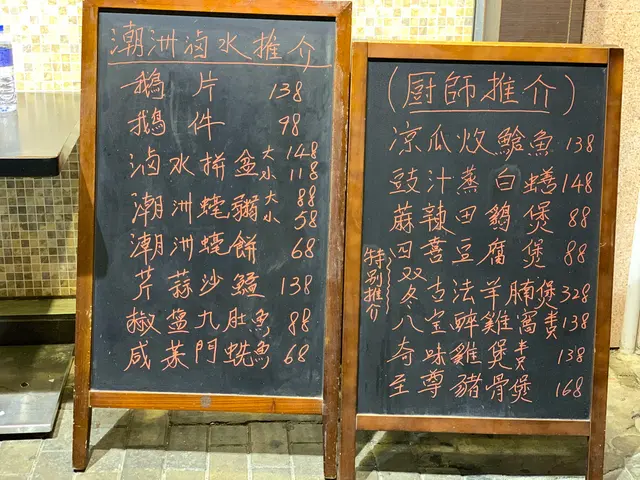 潮洲滷水推介
鵝片 138
鵝件 98
滷水拼盆 大 148 小 118
潮洲蠔粥 大 88 小 58
潮洲蠔餅 68
芹蒜沙鯭 138
椒鹽九肚魚 88
咸菜門鱔 68
(厨師推介)
凉瓜炆鱠魚 138
豉汁蒸白鱔 148
蔴辣田鷄煲 88
四喜豆腐煲 88
特别推介
双冬古法羊腩煲 328
八宝醉雞窩 138
奇味雞煲 138
至尊豬骨煲 168